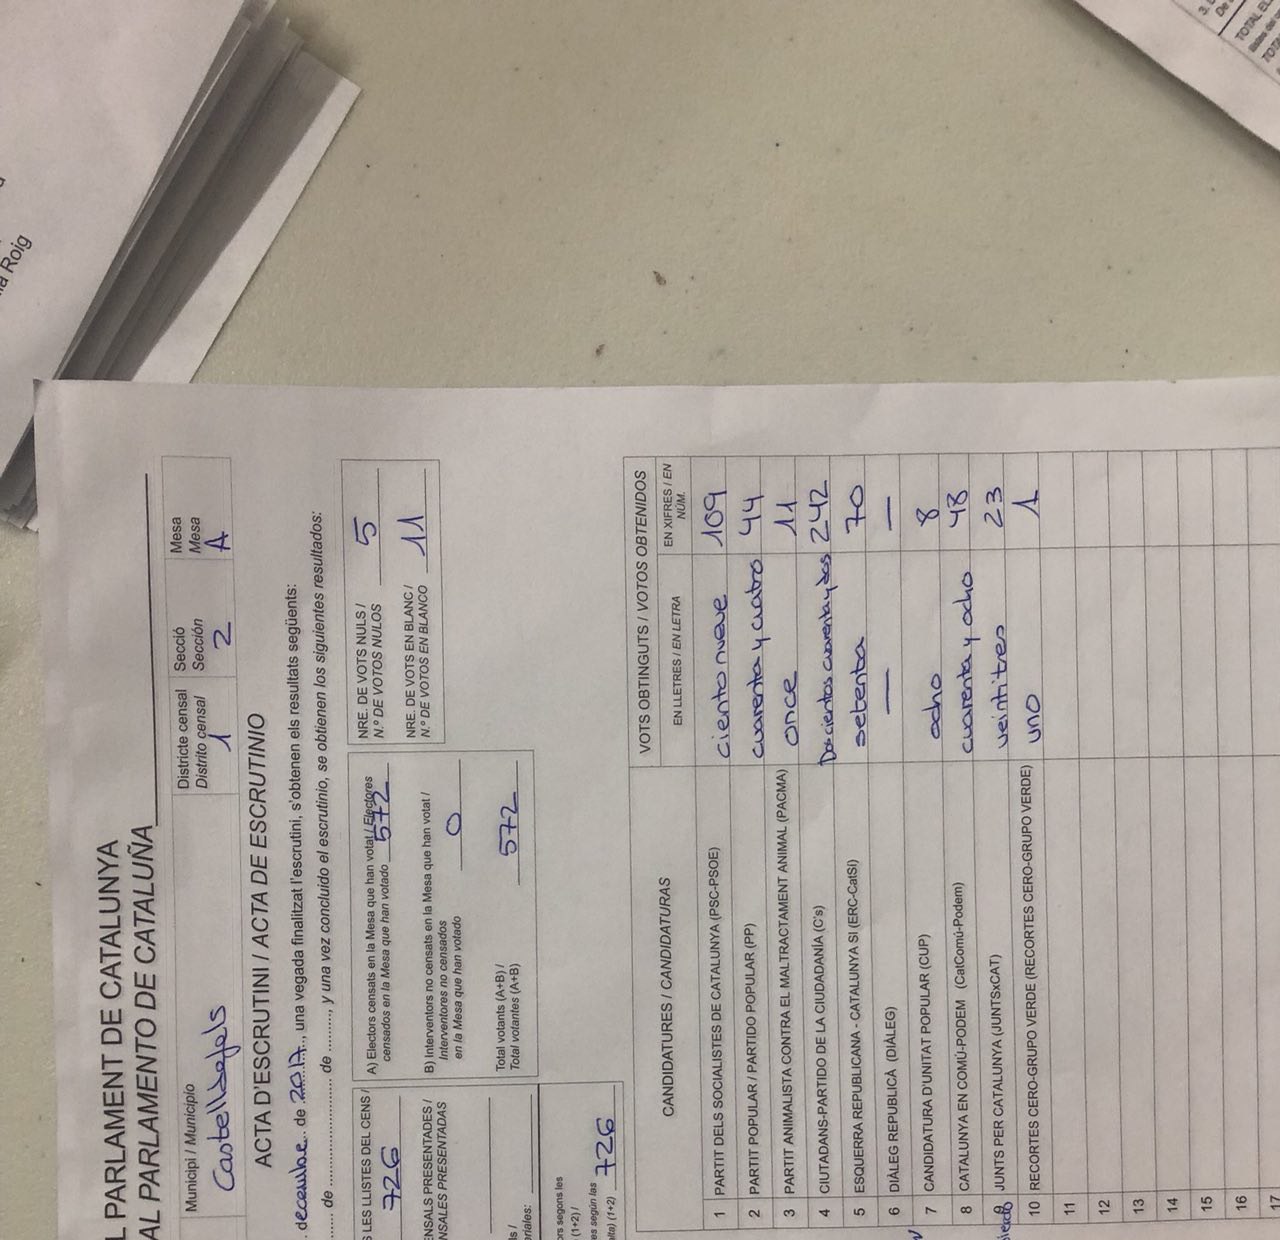 a Roig
L PARLAMENT DE CATALUNYA
AL PARLAMENTO DE CATALUÑA
Municipi / Municipio
Castelldefels
Districte censal
Distrito censal
1
Secció
Sección
2
Mesa
Mesa
A
ACTA D'ESCRUTINI / ACTA DE ESCRUTINIO
decembre de 2017, una vegada finalitzat l'escrutini, s'obtenen els resultats següents:
de de , y una vez concluido el escrutinio, se obtienen los siguientes resultados:
LES LLISTES DEL CENS /
726
ENSALS PRESENTADES /
NSALES PRESENTADAS
ors segons les
(1+2) /
es según las
alta) (1+2) 726
A) Electors censats en la Mesa que han votat / Electores
censados en la Mesa que han votado 572
B) Interventors no censats en la Mesa que han votat /
Interventores no censados
en la Mesa que han votado
0
Total votants (A+B) /
Total votantes (A+B)
572
NRE. DE VOTS NULS /
N.º DE VOTOS NULOS
5
NRE. DE VOTS EN BLANC /
N.º DE VOTOS EN BLANCO
11
CANDIDATURES / CANDIDATURAS
VOTS OBTINGUTS / VOTOS OBTENIDOS
EN LLETRES / EN LETRA
EN XIFRES / EN NÚM.
1 PARTIT DELS SOCIALISTES DE CATALUNYA (PSC-PSOE) ciento nueve 109
2 PARTIT POPULAR / PARTIDO POPULAR (PP) cuarenta y cuatro 44
3 PARTIT ANIMALISTA CONTRA EL MALTRACTAMENT ANIMAL (PACMA) once 11
4 CIUTADANS-PARTIDO DE LA CIUDADANÍA (C's) Doscientos cuarenta y dos 242
5 ESQUERRA REPUBLICANA - CATALUNYA SI (ERC-CatSI) setenta 70
6 DIÀLEG REPUBLICÀ (DIÀLEG) — —
7 CANDIDATURA D'UNITAT POPULAR (CUP) ocho 8
8 CATALUNYA EN COMÚ-PODEM (CatComú-Podem) cuarenta y ocho 48
9 JUNTS PER CATALUNYA (JUNTSxCAT) veintitres 23
10 RECORTES CERO-GRUPO VERDE (RECORTES CERO-GRUPO VERDE) uno 1
11
12
13
14
15
16
17